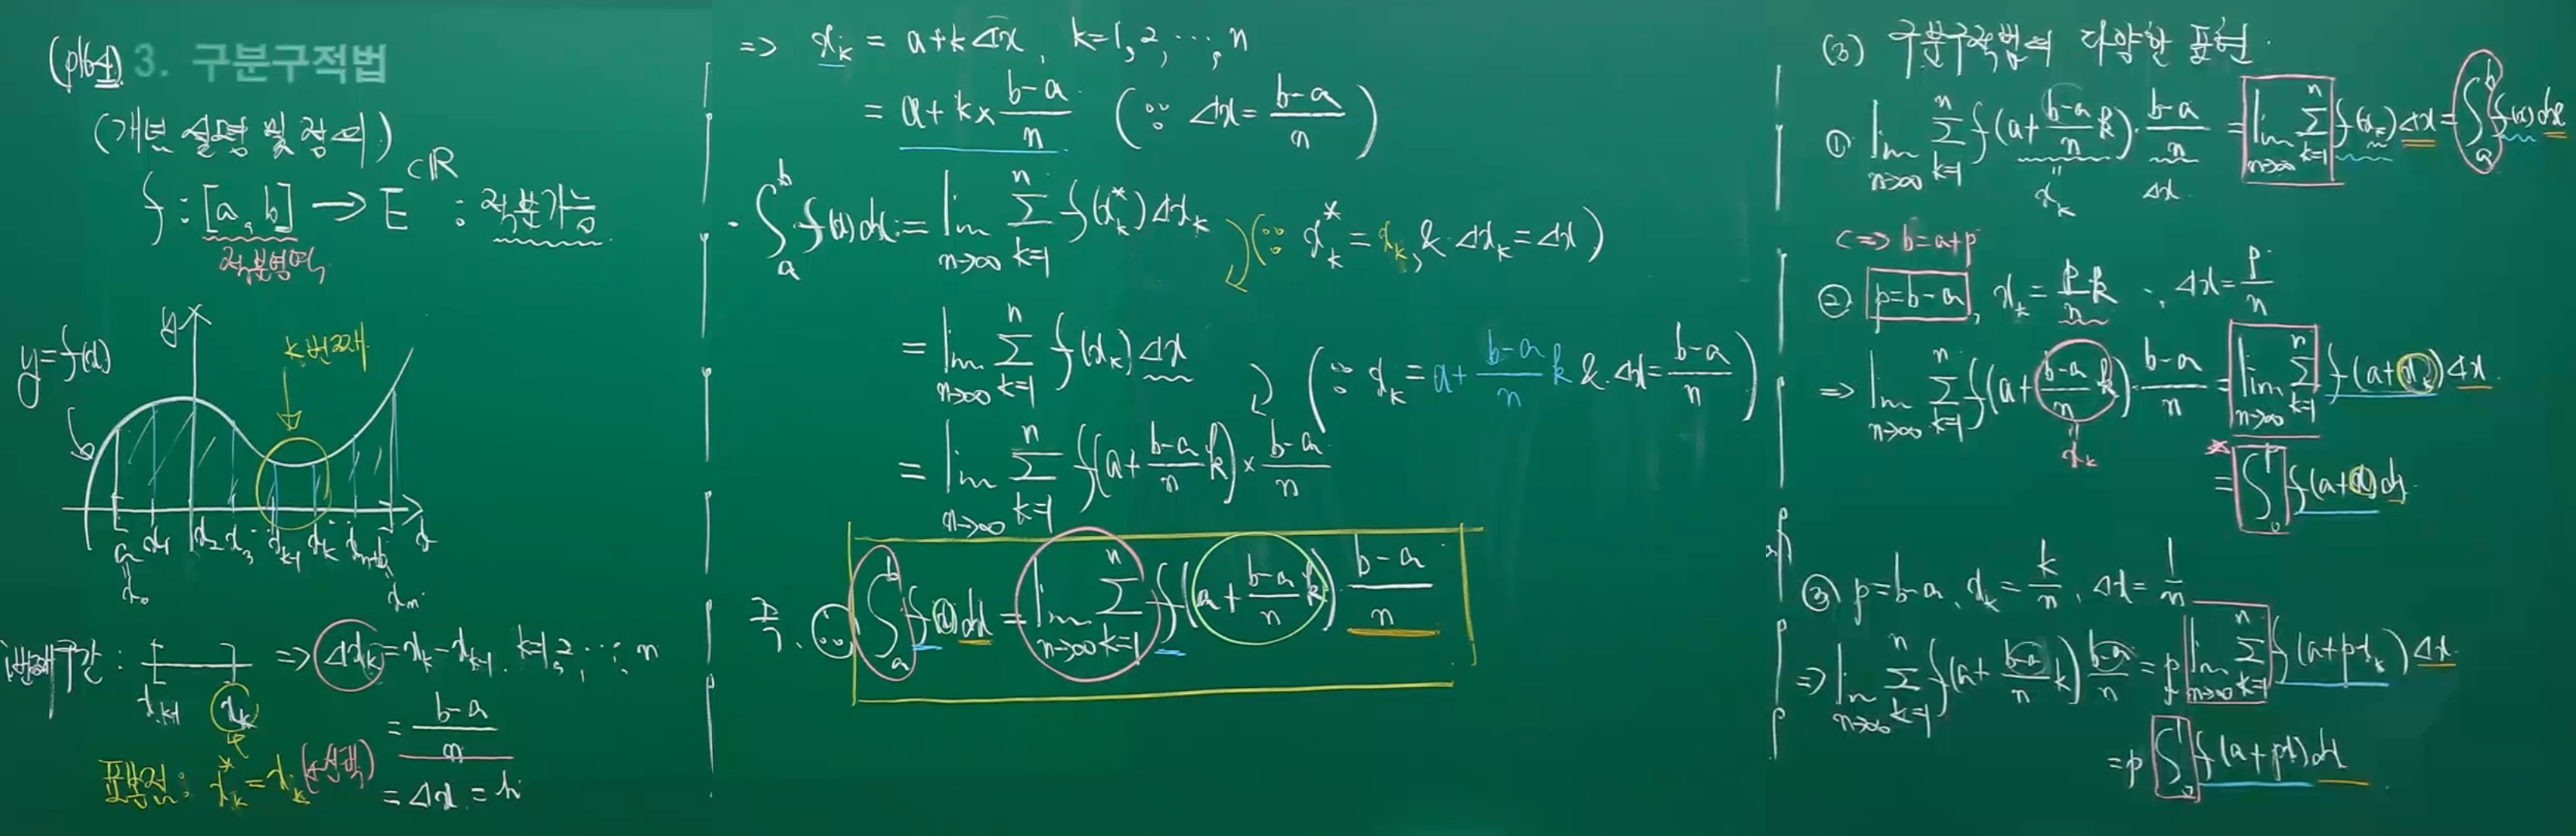 (p164) 3. 구분구적법
(개념 설명 및 정의)
f : [a, b] → E ⊂ℝ : 적분가능
적분영역
y=f(x)
y
k번째
a x₁ x₂ x₃ xₖ₋₁ xₖ xₙ₋₁ b x
= x₀
= xₙ
k번째구간 : xₖ₋₁ xₖ ⇒ Δxₖ = xₖ - xₖ₋₁, k=1, 2, ⋯, n
= (b-a)/n
표본점 : xₖ* = xₖ (선택)
= Δx = h
⇒ xₖ = a+kΔx, k=1, 2, ⋯, n
= a+k×(b-a)/n (∵ Δx = (b-a)/n)
· ∫ₐᵇ f(x)dx := lim_{n→∞} Σ_{k=1}^{n} f(xₖ*)Δxₖ (∵ xₖ* = xₖ, & Δxₖ = Δx)
= lim_{n→∞} Σ_{k=1}^{n} f(xₖ)Δx (∵ xₖ = a+(b-a)/n k & Δx = (b-a)/n)
= lim_{n→∞} Σ_{k=1}^{n} f(a+(b-a)/n k)×(b-a)/n
즉. ∵ ∫ₐᵇ f(x)dx = lim_{n→∞} Σ_{k=1}^{n} f(a+(b-a)/n k) (b-a)/n
(3) 구분구적법의 다양한 표현.
① lim_{n→∞} Σ_{k=1}^{n} f(a+(b-a)/n k)·(b-a)/n = lim_{n→∞} Σ_{k=1}^{n} f(xₖ)Δx = ∫ₐᵇ f(x)dx
= xₖ Δx
⇔ b=a+p
② p=b-a, xₖ = p/n k, Δx = p/n
⇒ lim_{n→∞} Σ_{k=1}^{n} f(a+(b-a)/n k)·(b-a)/n = lim_{n→∞} Σ_{k=1}^{n} f(a+xₖ)Δx
= xₖ
* = ∫₀ᵖ f(a+x)dx.
③ p=b-a, xₖ = k/n, Δx = 1/n
⇒ lim_{n→∞} Σ_{k=1}^{n} f(a+(b-a)/n k) (b-a)/n = p lim_{n→∞} Σ_{k=1}^{n} f(a+pxₖ)Δx
= p ∫₀¹ f(a+px)dx